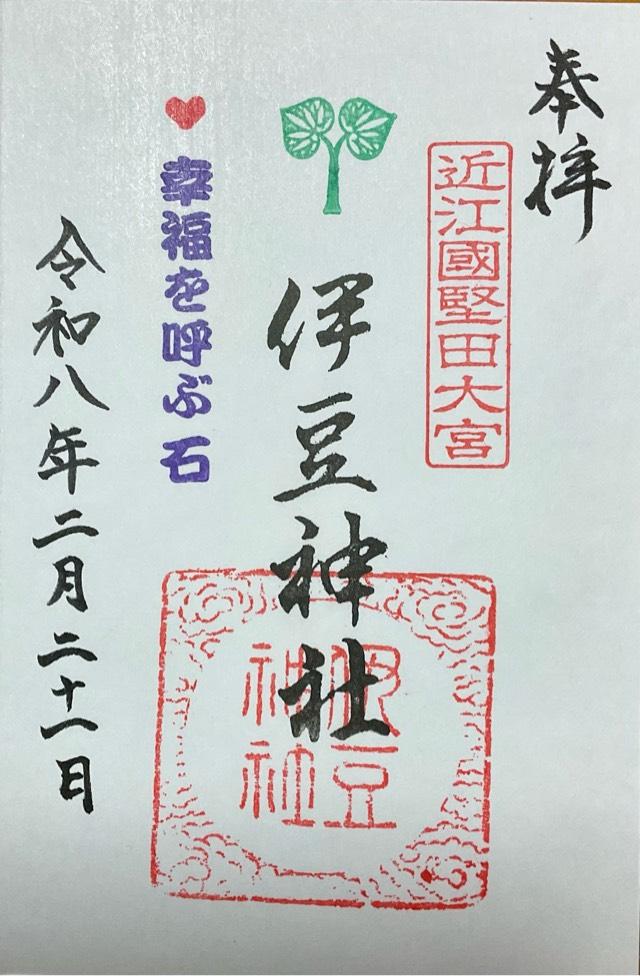 奉拝
近江國堅田大宮
伊豆神社
伊豆
神社
幸福を呼ぶ石
令和八年二月二十一日